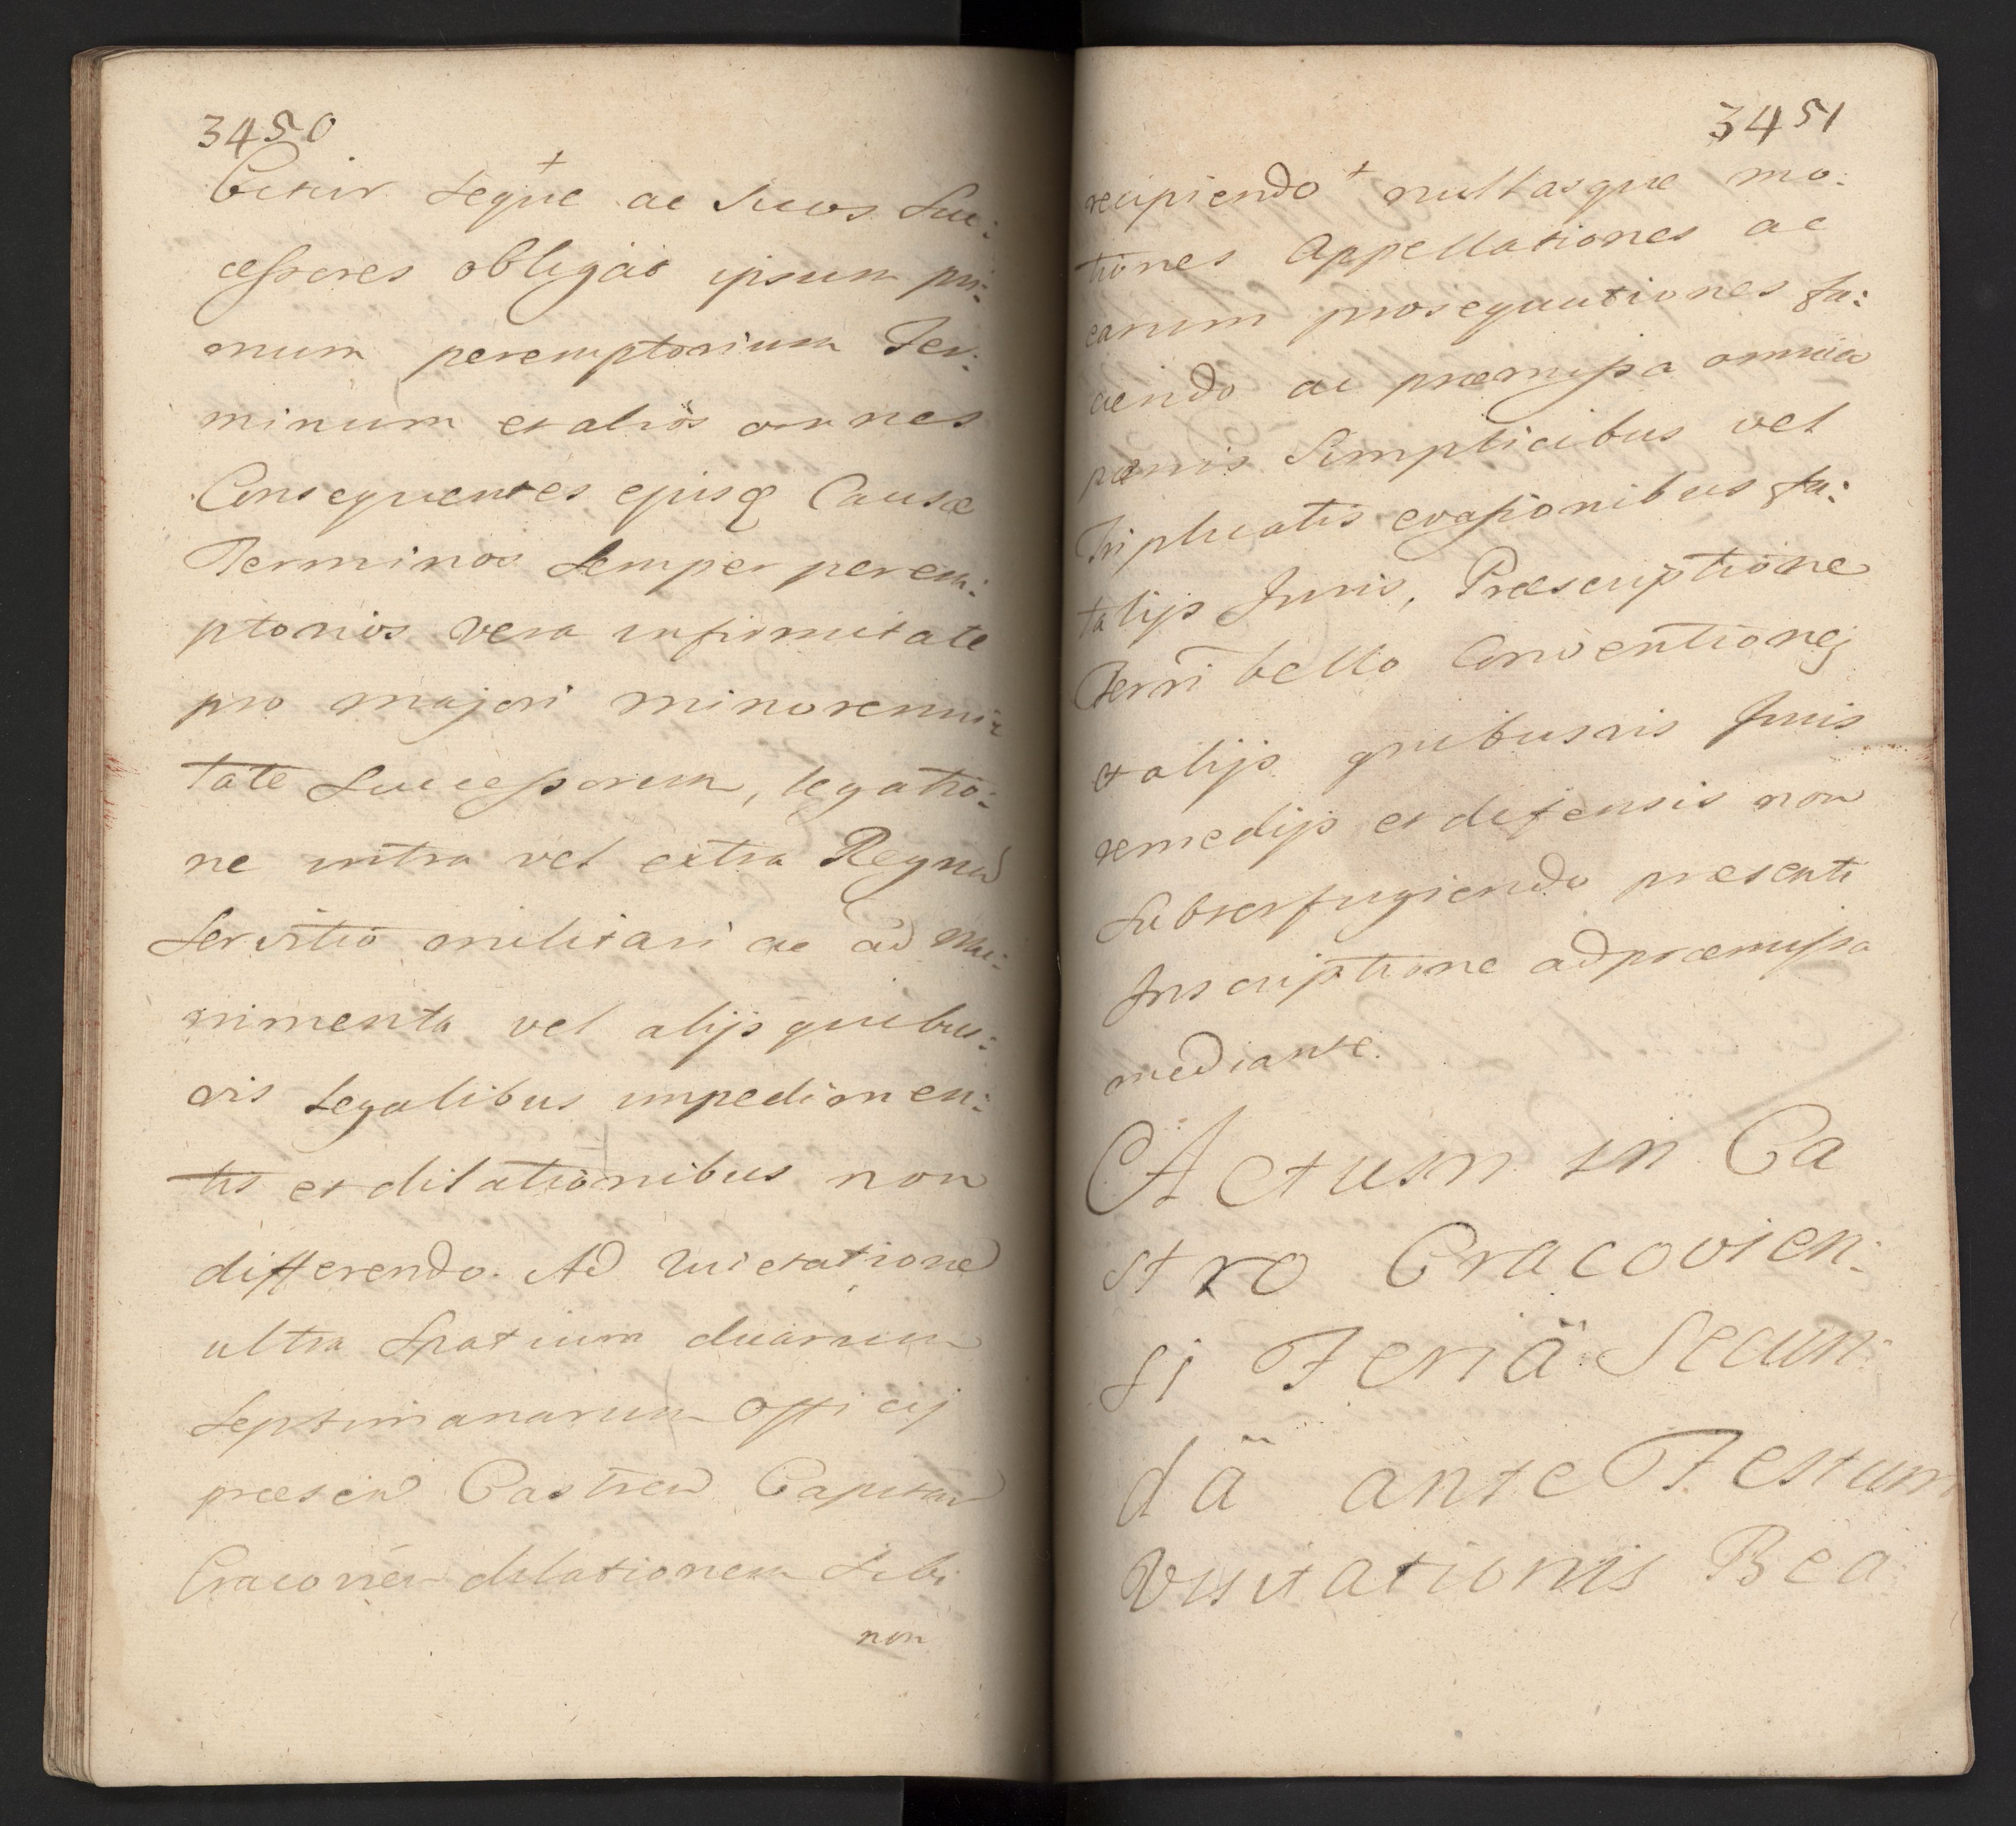 3450
seque ac Suos Suc:
cessores obligat ipsum pri:
mum peremptorium Ter:
minum et aliós omnes
Consequentes ejusq Causæ
Terminos Semper perem:
ptorios vera infirmitate
pro majori minorenni:
tate Successorum, legatio:
ne intra vel extra Regnu
Servitio militari ac ad Mu:
nimenta vel alijs quibus:
vis legalibus impedimen:
tis et dilationibus non
differendo. Ad quietatione
ultra Spatium duarum
Septimanarum Officij
præsen Castren Capitan
Cracovien dilationem Sibi
non
3451
recipiendo + nullasque mo:
tiones Appellationes ac
earum prosequutiones fa:
ciendo ac præmissa omnia
pænis Simplicibus vel
Triplicatis evasionibus fa:
talijs Juris, Præscriptione
Terri bello Conventionej
et alijs quibusvis Juris
remedijs et defensis non
Subterfugiendo præsenti
Inscriptione ad præmissa
mediante.
Actum in Ca
stro Cracovien:
si Feriä Secun:
dä ante Festum
Visitationis Bea